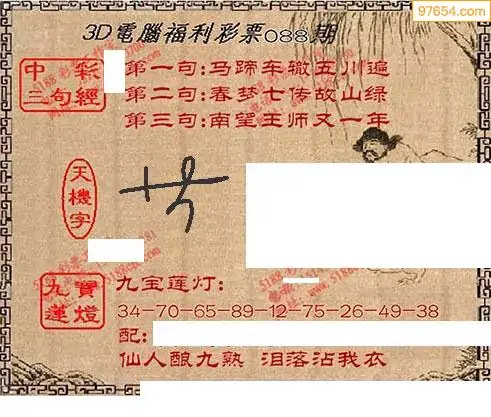 97654.com
3D電腦福利彩票088期
中彩
三句經
第一句:马蹄车辙五川遍
第二句:春梦七传故山绿
第三句:南望王师又一年
天機字
九寶
蓮燈
九宝莲灯:
34-70-65-89-12-75-26-49-38
配:
仙人酿九熟 泪落沾我衣